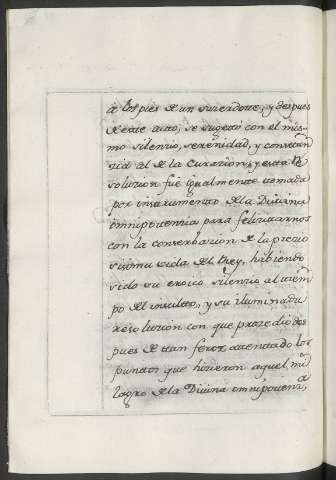 a los pies de un sacerdote; y despues
de este acto, se sugetó con el mis-
mo silencio, serenidad, y constan
cia al de la Curazion; y esta Re
solucion fué igualmente tomada
por instrumento de la Divina
omnipotencia para felicitarnos
con la conserbacion de la precio
sisima vida del Rey, habiendo
sido su eroico silencio al tiem
po del insulto, y su iluminada
resolucion con que prozedio des
pues de tan feroz atentado los
puntos que hicieron aquel mi
lagro de la Divina omnipotencia